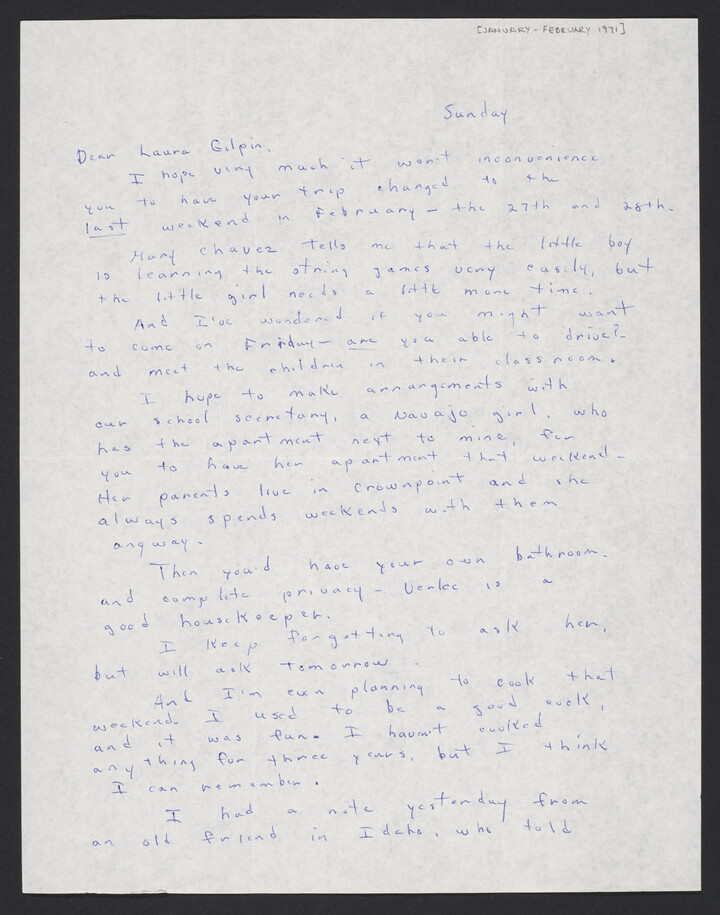 [JANUARY - FEBRUARY 1971]
Sunday
Dear Laura Gilpin,
I hope very much it won't inconvenience
you to have your trip changed to the
last weekend in February - the 27th and 28th.
Mary Chavez tells me that the little boy
is learning the string games very easily, but
the little girl needs a little more time.
And I've wondered if you might want
to come on Friday - are you able to drive? -
and meet the children in their classroom.
I hope to make arrangements with
our school secretary, a Navajo girl, who
has the apartment next to mine, for
you to have her apartment that weekend -
Her parents live in Crownpoint and she
always spends weekends with them
anyway -
Then you'd have your own bathroom.
and complete privacy - Verlee is a
good housekeeper.
I keep forgetting to ask her,
but will ask tomorrow.
And I'm even planning to cook that
weekend. I used to be a good cook,
and it was fun. I haven't cooked
anything for three years, but I think
I can remember.
I had a note yesterday from
an old friend in Idaho, who told